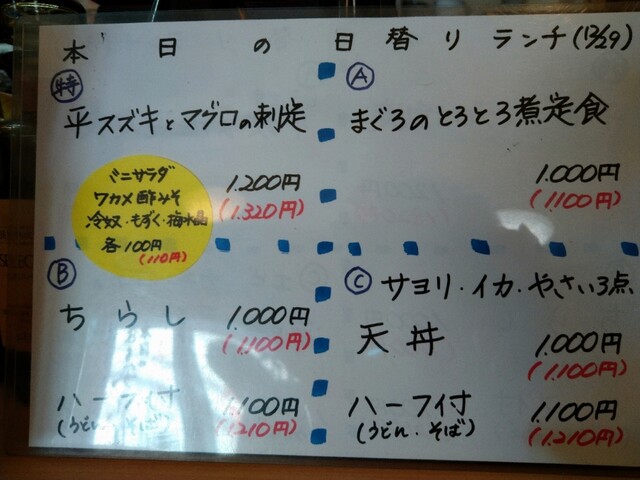 本日の日替りランチ(12/29)
特
平スズキとマグロの刺定
1.200円
(1.320円)
ミニサラダ
ワカメ酢みそ
冷奴・もずく・梅水晶
各100円
(110円)
A
まぐろのとろとろ煮定食
1.000円
(1.100円)
B
ちらし 1.000円
(1.100円)
ハーフ付 1.100円
(うどん・そば) (1.210円)
C サヨリ・イカ・やさい3点
天丼 1.000円
(1.100円)
ハーフ付 1.100円
(うどん・そば) (1.210円)